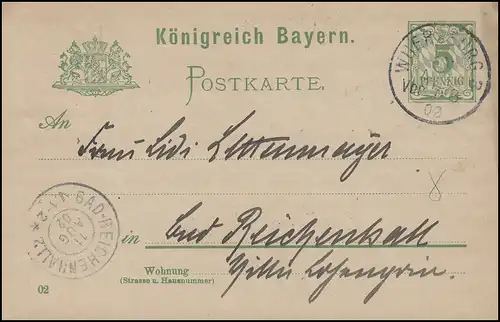 Königreich Bayern.
POSTKARTE.
5
PFENNIG
WUERZBURG
VDP
09
An
Frau Lidi Lettenmayer
BAD-REICHENHALL
11
AUG
in Bad Reichenhall
Wohnung
(Strasse u. Hausnummer)
Villa Lohengrin.
02